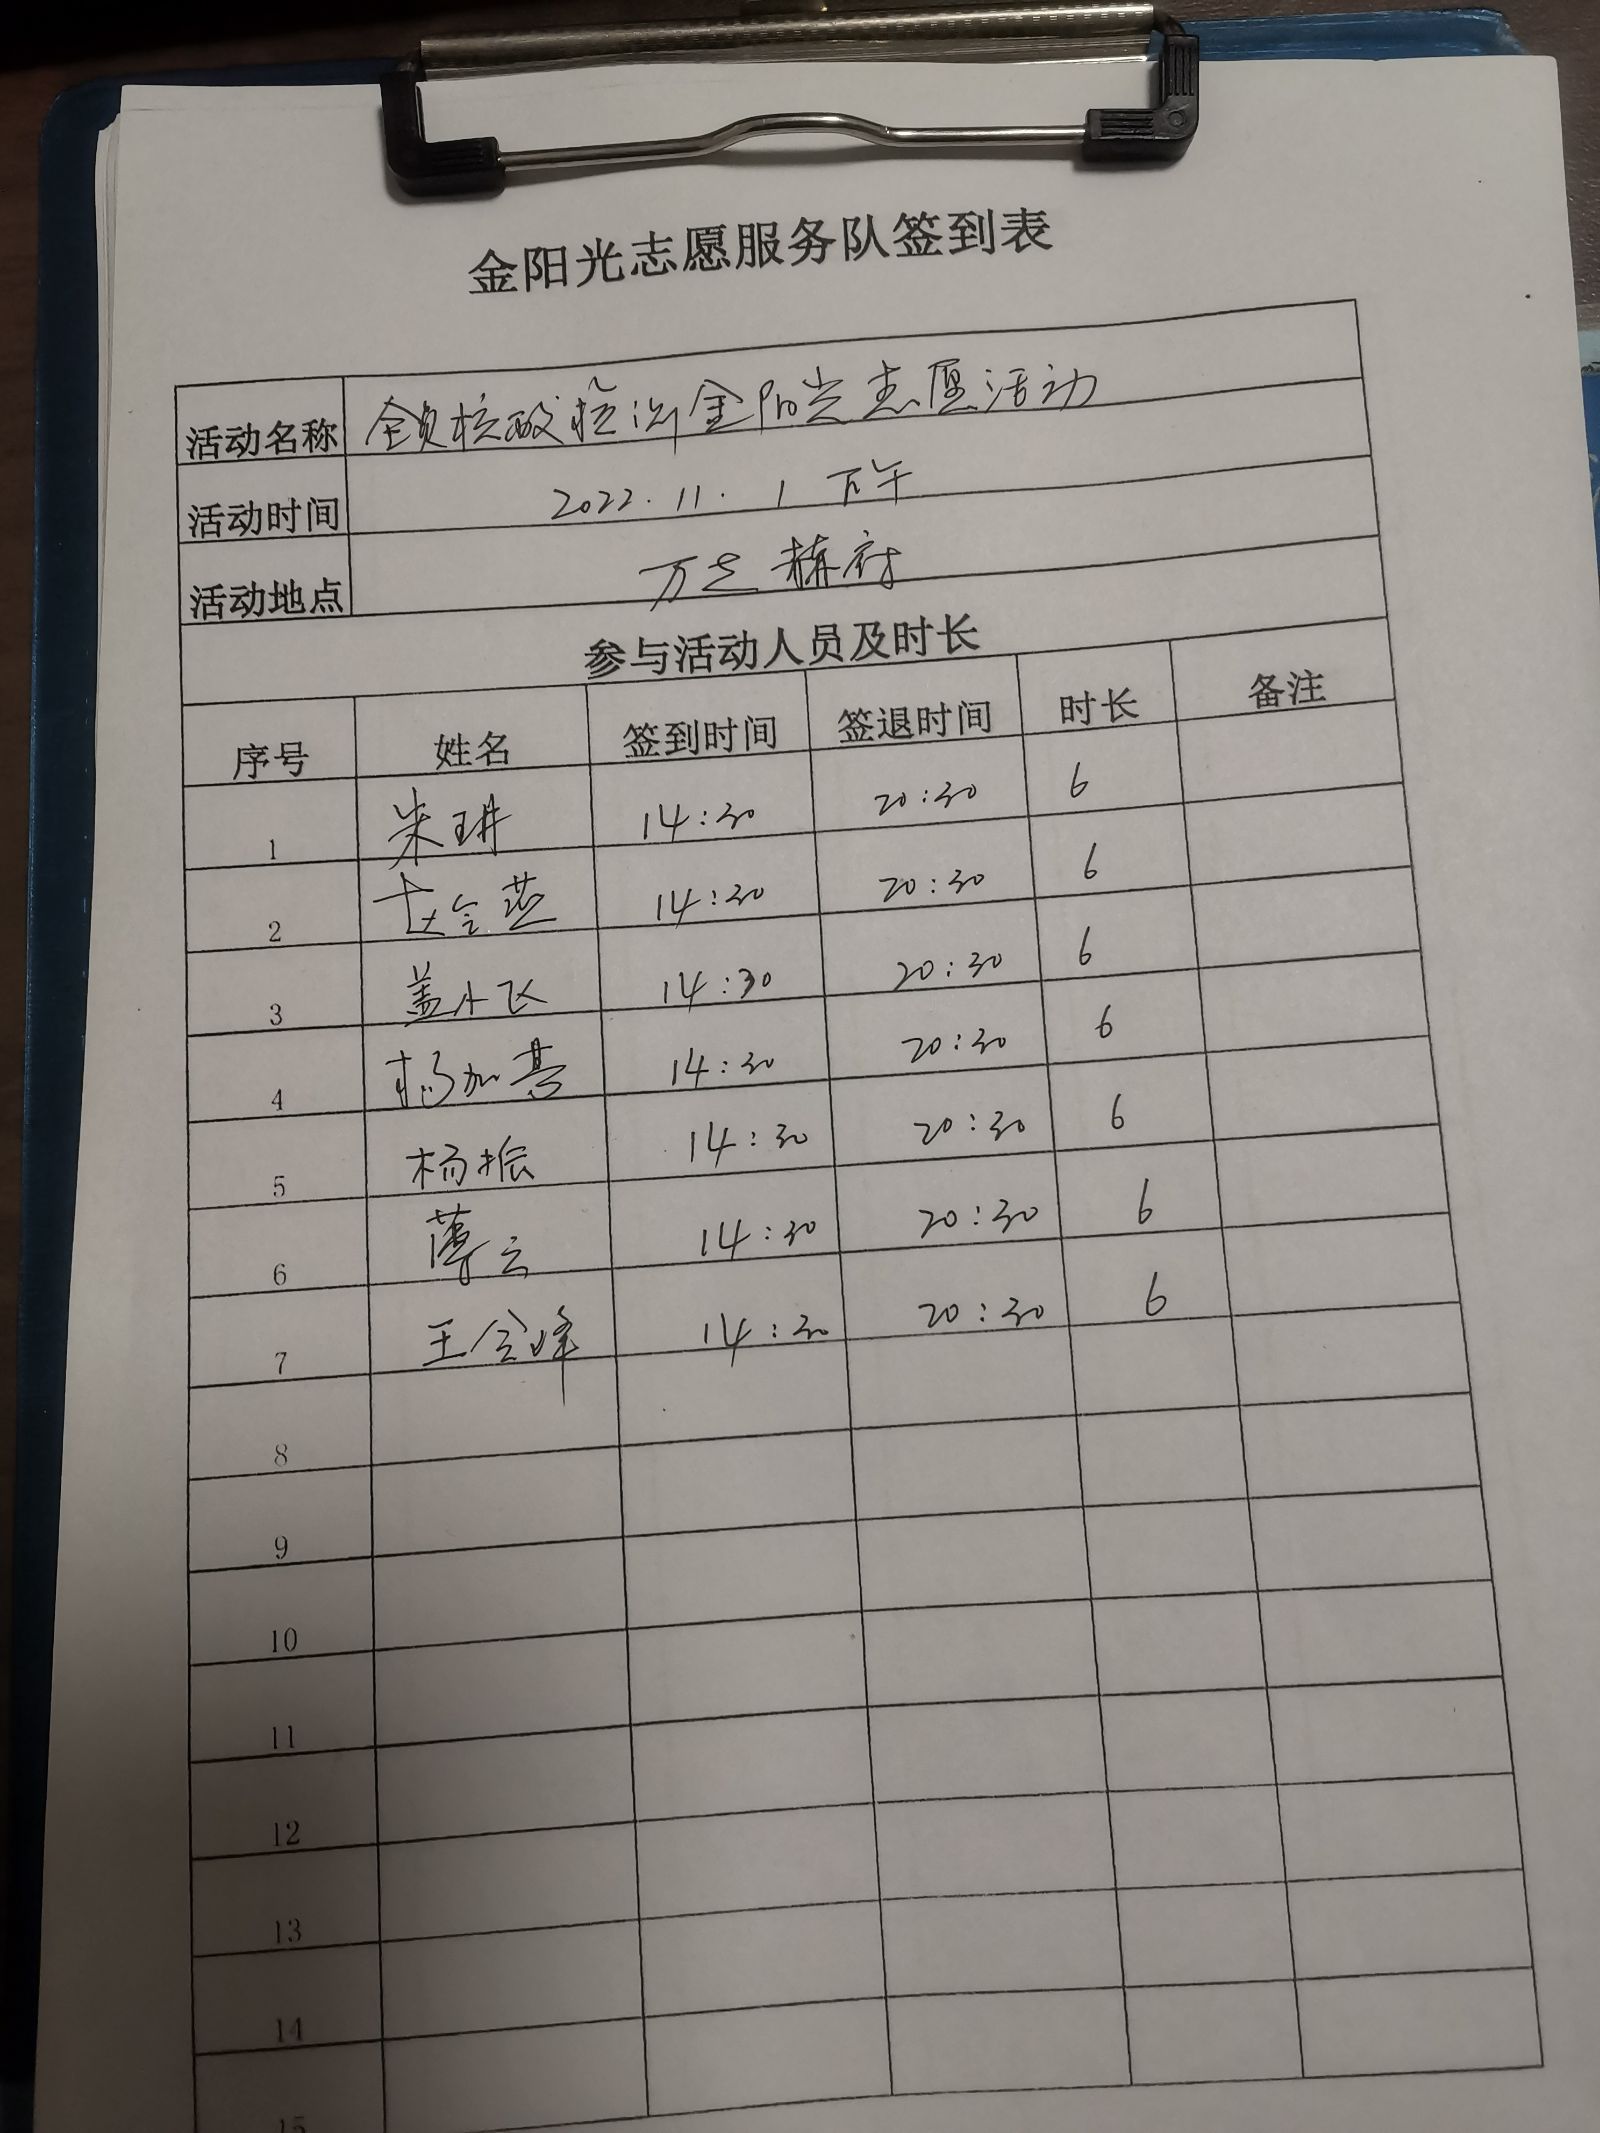 金阳光志愿服务队签到表
活动名称 全员核酸检测金阳光志愿活动
活动时间 2022.11.1 下午
活动地点 万
参与活动人员及时长
序号 姓名 签到时间 签退时间 时长 备注
1 朱琪 14:30 20:30 6
2 赵会燕 14:30 20:30 6
3 盖小飞 14:30 20:30 6
4 杨加 14:30 20:30 6
5 杨振 14:30 20:30 6
6 薄云 14:30 20:30 6
7 王会峰 14:30 20:30 6
8
9
10
11
12
13
14
15